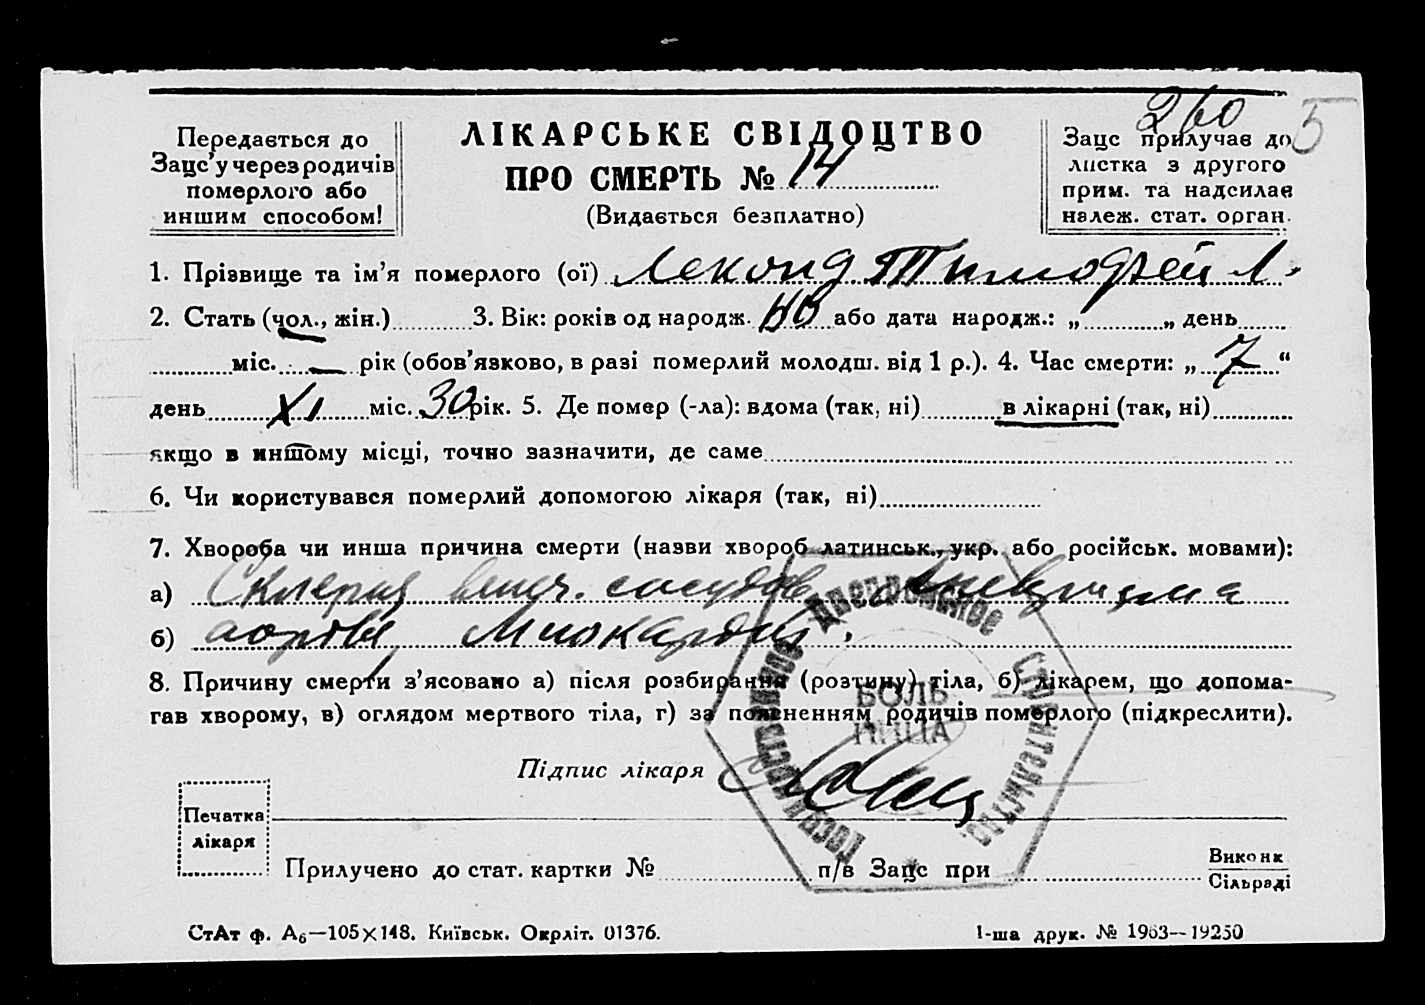 260
5
Передається до
Зацс'у через родичів
померлого або
иншим способом!
ЛІКАРСЬКЕ СВІДОЦТВО
ПРО СМЕРТЬ № 14
(Видається безплатно)
Зацс прилучає до
листка з другого
прим. та надсилає
належ. стат. орган.
1. Прізвище та ім'я померлого (ої) Тимофей Л.
2. Стать (чол., жін.) 3. Вік: років од народж. або дата народж.: „ „ день
міс. — рік (обов'язково, в разі померлий молодш. від 1 р.). 4. Час смерти: „ 7 “
день XI міс. 30 рік. 5. Де помер (-ла): вдома (так, ні) в лікарні (так, ні)
якщо в иншому місці, точно зазначити, де саме
6. Чи користувався померлий допомогою лікаря (так, ні)
7. Хвороба чи инша причина смерти (назви хвороб латинськ., укр. або російськ. мовами):
а) сосудов, аневризма
б) аорты, Миокардит.
8. Причину смерти з'ясовано а) після розбирання (розтину) тіла, б) лікарем, що допома-
гав хворому, в) оглядом мертвого тіла, г) за поясненням родичів померлого (підкреслити).
Підпис лікаря
Печатка
лікаря
Государственное Днепровское Строительство
БОЛЬ
НИЦА
Прилучено до стат. картки № п/в Зацс при Виконк
Сільраді
СтАт ф. А6—105×148. Київськ. Окрліт. 01376.
1-ша друк. № 1963—19250